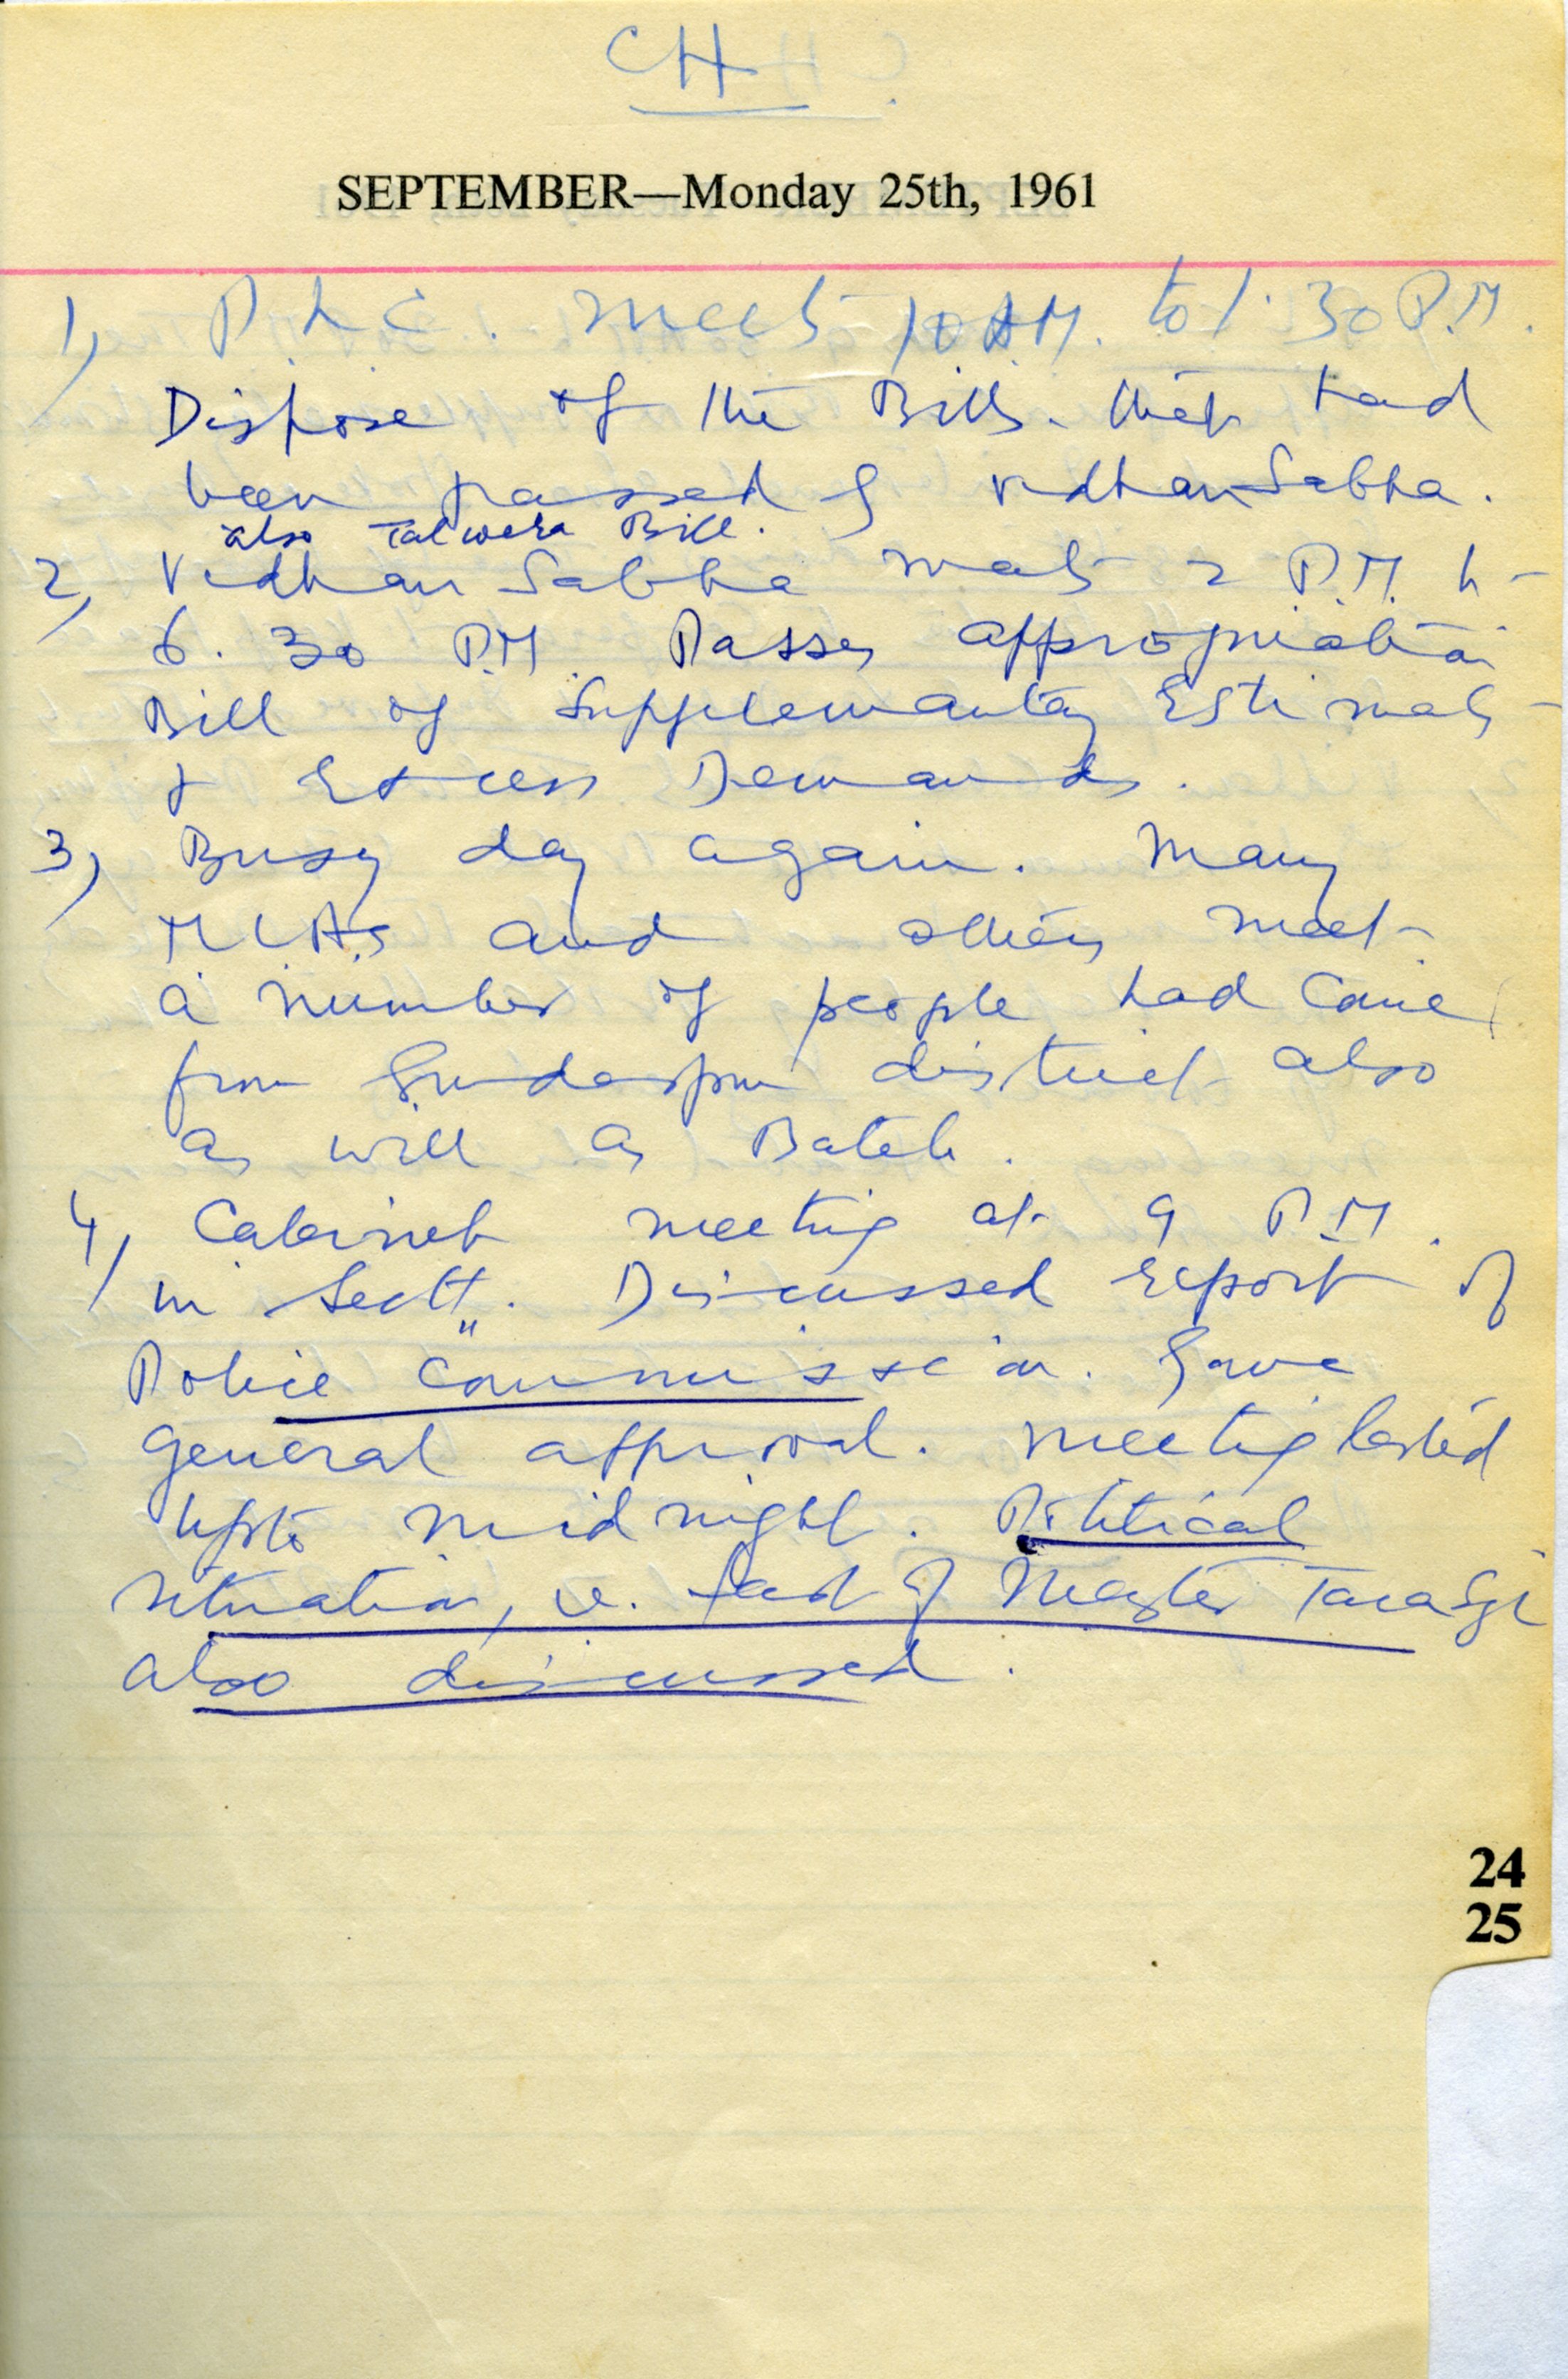 CH
SEPTEMBER—Monday 25th, 1961
1) P.L.C. meets 10 AM. to 1.30 P.M.
Dispose of the Bills. that had
been passed by VidhanSabha.
also Talwera Bill.
2) Vidhan Sabha meets 2 P.M. to
6.30 P.M. Passes appropriation
Bill of Supplementary Estimates
& Excess Demands.
3) Busy day again. Many
MLAs and others meet.
a number of people had come
from Gurdaspur district also
as well as Batala.
4) Cabinet meeting at 9 P.M.
in Sectt. Discussed report of
Police Commission. Gave
general approval. Meeting lasted
upto midnight. Political
situation, i.e. fast of Master Tara Sgh
also discussed.
24
25